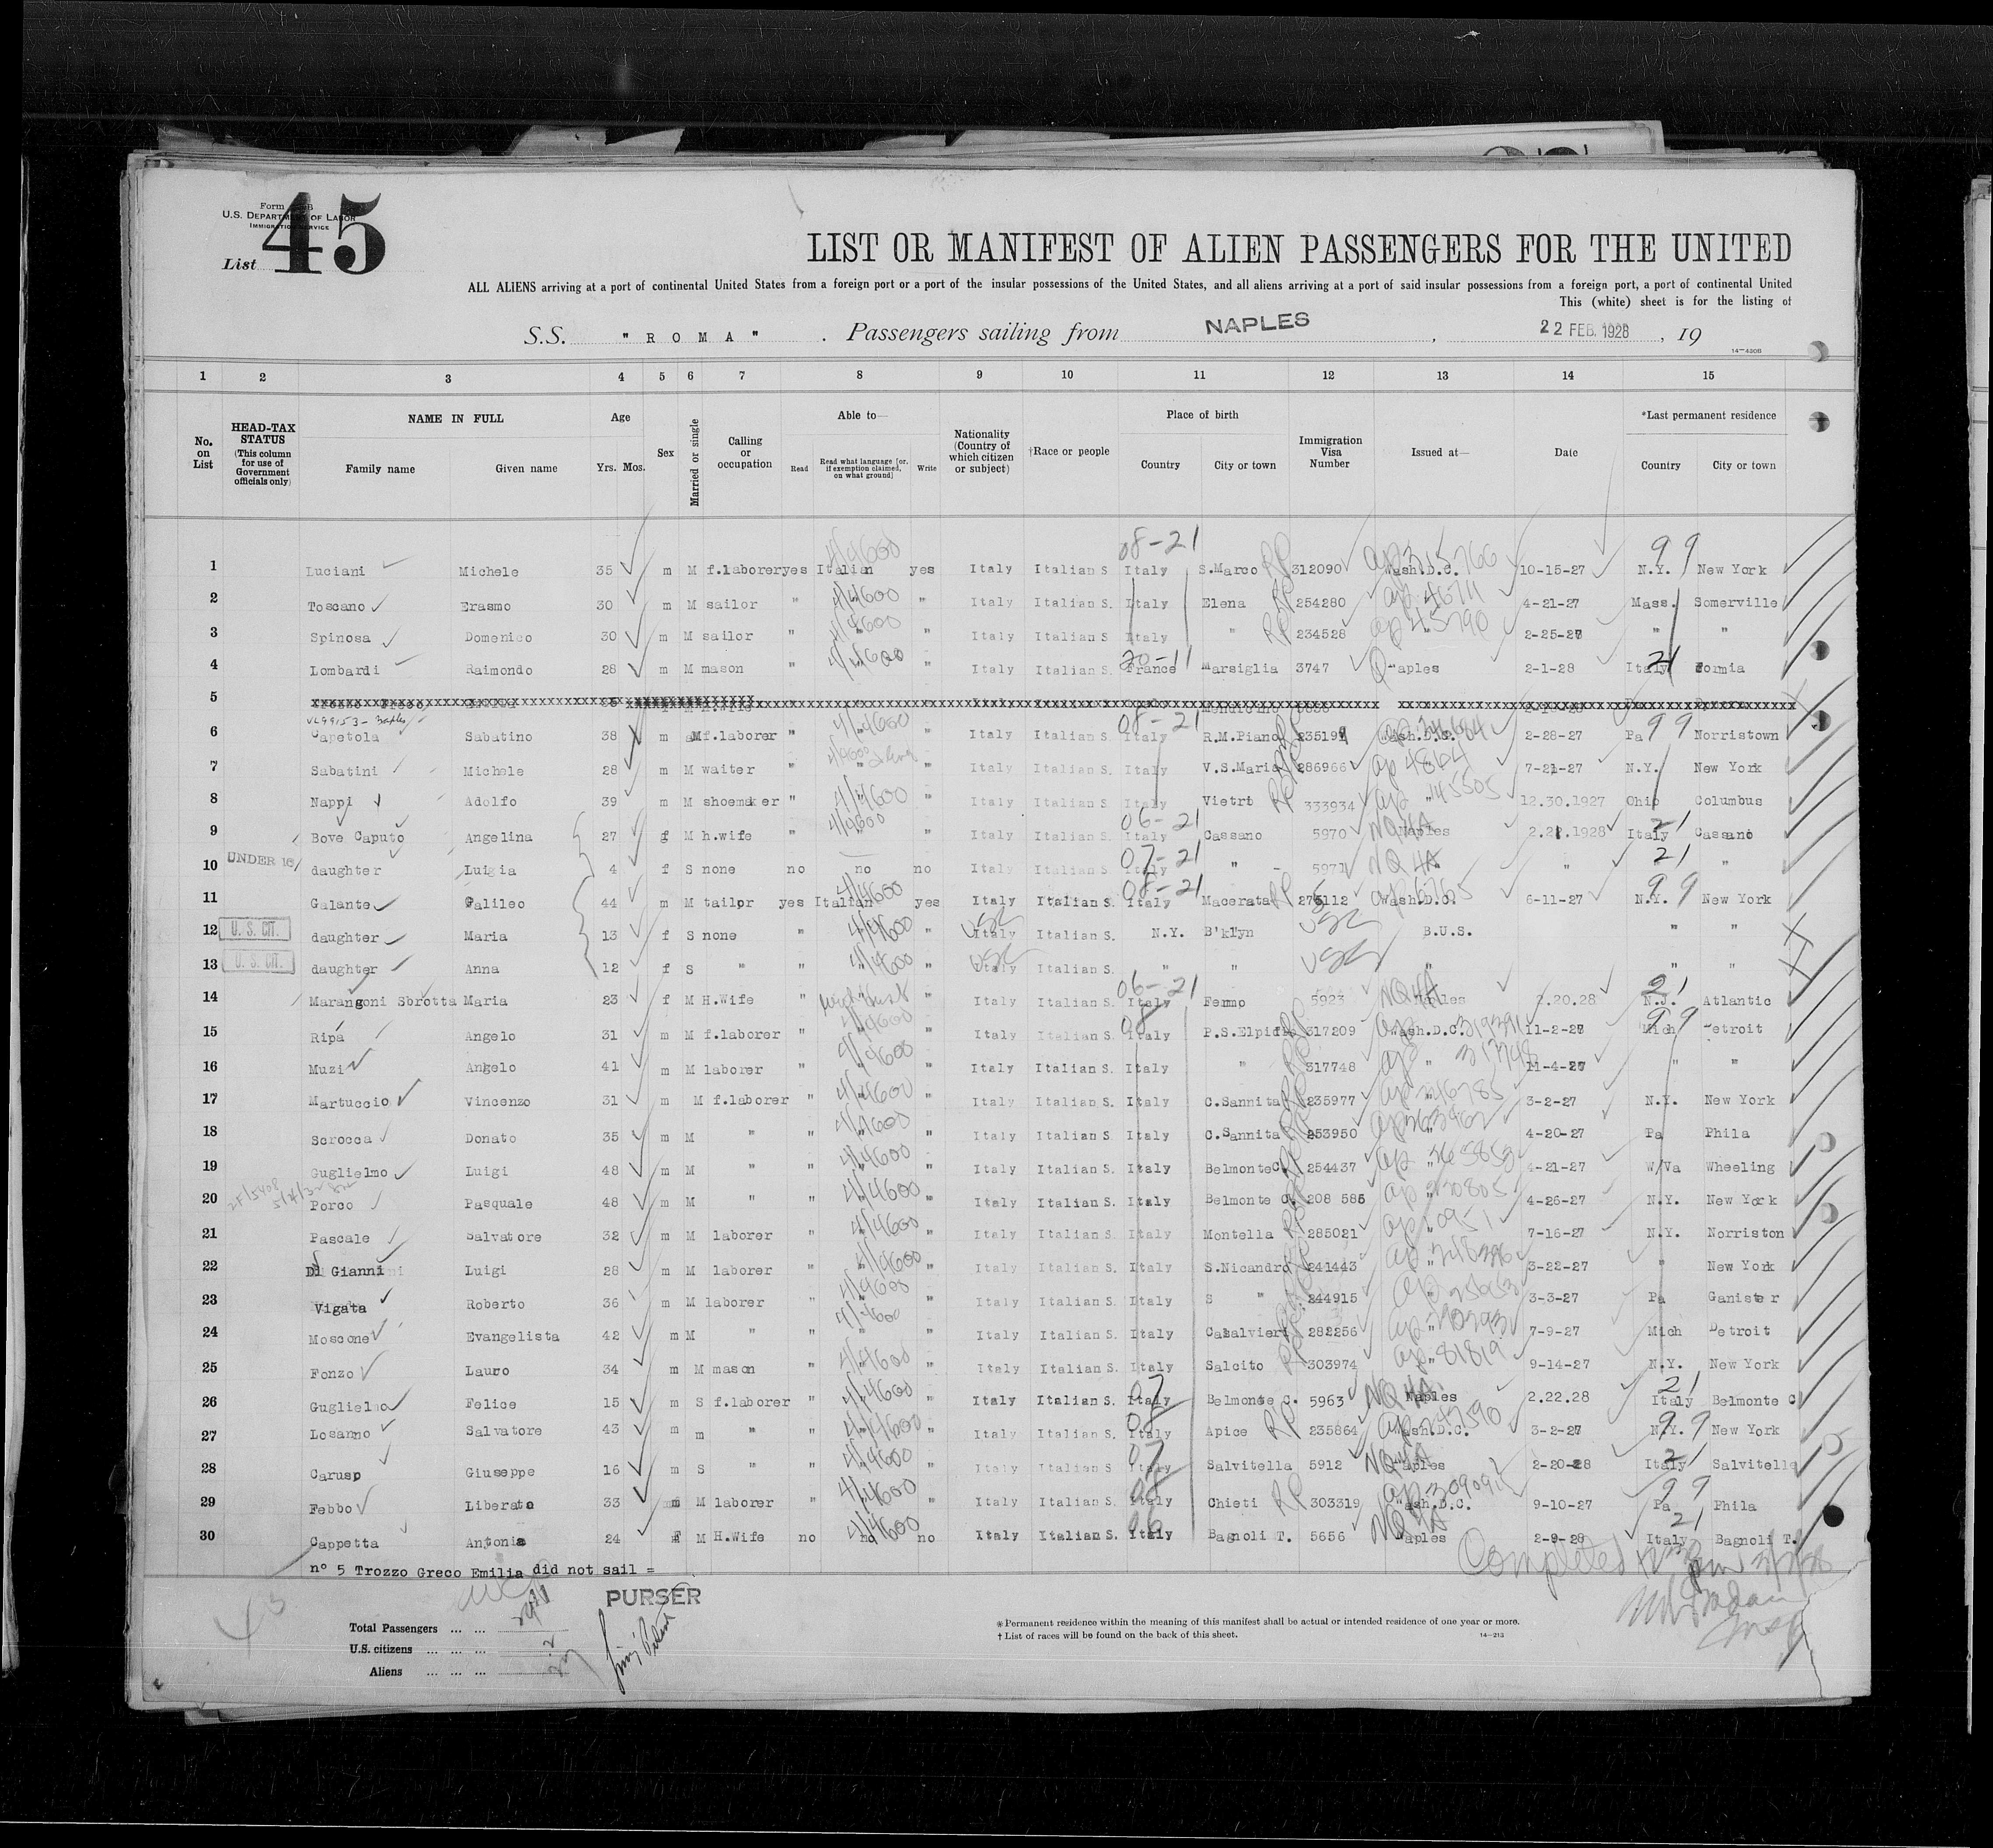 45
Form
U.S. DEPARTMENT OF LABOR
IMMIGRATION SERVICE
List
LIST OR MANIFEST OF ALIEN PASSENGERS FOR THE UNITED
ALL ALIENS arriving at a port of continental United States from a foreign port or a port of the insular possessions of the United States, and all aliens arriving at a port of said insular possessions from a foreign port, a port of continental United
This (white) sheet is for the listing of
S.S. "ROMA" . Passengers sailing from NAPLES , 22 FEB. 1928 , 19
14—430B
1 2 3 4 5 6 7 8 9 10 11 12 13 14 15
No. on List
HEAD-TAX STATUS (This column for use of Government officials only)
NAME IN FULL Family name Given name
Age Yrs. Mos.
Sex
Married or single
Calling or occupation
Able to— Read Read what language [or, if exemption claimed, on what ground] Write
Nationality (Country of which citizen or subject)
†Race or people
Place of birth Country City or town
Immigration Visa Number
Issued at—
Date
*Last permanent residence Country City or town
08-21 99
1 Luciani Michele 35 m M f.laborer yes Italian 4/4600 yes Italy Italian S Italy S.Marco RP 312090 Wash.D.C. 10-15-27 N.Y. New York
2 Toscano Erasmo 30 m M sailor " 4/4600 " Italy Italian S. Italy Elena RP 254280 4-21-27 Mass. Somerville
3 Spinosa Domenico 30 m M sailor " 4/4600 " Italy Italian S Italy " RP 234528 2-25-27 " "
4 Lombardi Raimondo 28 m M mason " 4/4600 " Italy Italian S. France 20-11 Marsiglia 3747 Naples 2-1-28 Italy 21 Formia
5
6 Capetola Sabatino 38 m M f.laborer " 4/4600 " Italy Italian S. Italy 08-21 R.M.Piano Wash.D.C. 2-28-27 Pa 99 Norristown
7 Sabatini Michele 28 m M waiter " " Italy Italian S. Italy V.S.Maria 286966 ap 4864 7-21-27 N.Y. New York
8 Nappi Adolfo 39 m M shoemaker " 4/4600 " Italy Italian S. Italy Vietri RP 333934 12.30.1927 Ohio Columbus
9 Bove Caputo Angelina 27 f M h.wife " 4/4600 " Italy Italian S. Italy 06-21 Cassano 5970 NQ 4A Naples 2.22.1928 Italy 21 Cassano
10 UNDER 16 daughter Luigia 4 f S none no no no Italy Italian S. 07-21 " 5971 NQ 4A " 21 "
11 Galante Galileo 44 m M tailor yes Italian 4/4600 yes Italy Italian S. Italy 08-21 Macerata RP 275112 Wash.D.C. 6-11-27 N.Y. 99 New York
12 U. S. CIT. daughter Maria 13 f S none " 4/4600 " Italy USC Italian S. N.Y. B'klyn USC B.U.S. " "
13 U. S. CIT. daughter Anna 12 f S " " 4/4600 " Italy USC Italian S. " " USC " " "
14 Marangoni Sbrotta Maria 23 f M H.Wife " " Italy Italian S. Italy 06-21 Fermo 5923 NQ 4A Naples 2.20.28 N.J. 21 Atlantic
15 Ripá Angelo 31 m M f.laborer " 4/4600 " Italy Italian S. Italy 08 P.S.Elpidio RP 317209 Wash.D.C. 11-2-27 Mich 99 Detroit
16 Muzi Angelo 41 m M laborer " 4/4600 " Italy Italian S. Italy " RP 317748 ap 317748 11-4-27 " "
17 Martuccio Vincenzo 31 m M f.laborer " 4/4600 " Italy Italian S. Italy C.Sannita RP 235977 ap 246785 3-2-27 N.Y. New York
18 Scrocca Donato 35 m M " " 4/4600 " Italy Italian S. Italy C.Sannita RP 253950 4-20-27 Pa Phila
19 Guglielmo Luigi 48 m M " " 4/4600 " Italy Italian S. Italy Belmonte C. RP 254437 4-21-27 W/Va Wheeling
20 Porco Pasquale 48 m M " " 4/4600 " Italy Italian S. Italy Belmonte C. 208 585 4-26-27 N.Y. New York
21 Pascale Salvatore 32 m M laborer " 4/4600 " Italy Italian S. Italy Montella RP 285021 7-16-27 N.Y. Norriston
22 Di Gianni Luigi 28 m M laborer " 4/4600 " Italy Italian S. Italy S.Nicandro 241443 3-22-27 " New York
23 Vigata Roberto 36 m M laborer " 4/4600 " Italy Italian S. Italy S " 244915 3-3-27 Pa Ganister
24 Moscone Evangelista 42 m M " " 4/4600 " Italy Italian S. Italy Casalvieri 282256 7-9-27 Mich Detroit
25 Fonzo Lauro 34 m M mason " 4/4600 " Italy Italian S. Italy Salcito RP 303974 ap 81819 9-14-27 N.Y. New York
26 Guglielmo Felice 15 m S f.laborer " 4/4600 " Italy Italian S. Italy 07 Belmonte C. 5963 NQ 4A Naples 2.22.28 Italy 21 Belmonte C
27 Losanno Salvatore 43 m m " " 4/4600 " Italy Italian S. Italy 08 Apice RP 235864 Wash.D.C. 3-2-27 N.Y. 99 New York
28 Caruso Giuseppe 16 m S " " 4/4600 " Italy Italian S Italy 07 Salvitella 5912 NQ 4A Naples 2-20-28 Italy 21 Salvitella
29 Febbo Liberato 33 m M laborer " 4/4600 " Italy Italian S. Italy 08 Chieti RP 303319 Wash.D.C. 9-10-27 Pa 99 Phila
30 Cappetta Antonia 24 F M H.Wife no no 4/4600 no Italy Italian S. Italy 06 Bagnoli T. 5656 NQ 4A Naples 2-9-28 Italy 21 Bagnoli T.
n° 5 Trozzo Greco Emilia did not sail =
Completed
PURSER
Total Passengers ... ...
U.S. citizens ... ... ... 2
Aliens ... ... ...
*Permanent residence within the meaning of this manifest shall be actual or intended residence of one year or more.
†List of races will be found on the back of this sheet.
14—213